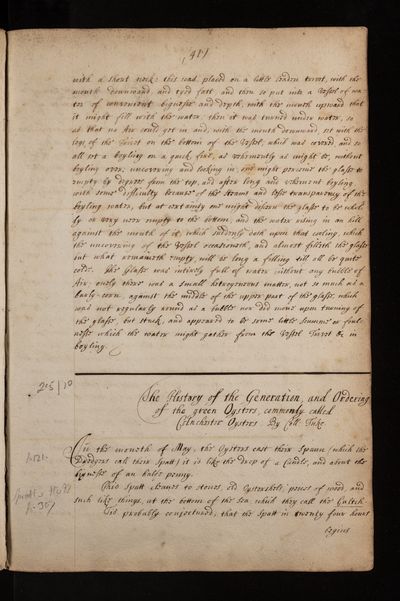 (41)
with a short neck: this was placed on a little leaden trivet, with the
mouth downward and tyed fast, and then so put into a Vessel of wa-
ter of convenient bignesse and depth, with the mouth upward that
it might fill with the water: then it was turned under water, so
as that no Air could get in and, with the mouth downward, set with the
legs of the Trivet on the bottom of the Vessel, which was covered and so
all set a boyling on a quick fire, as vehemently as might be, without
boyling over; uncovering and looking in, one might perceive the glasse to
empty by degrees from the top, and after long and vehement boyling
with some difficulty, because of the steame and lesse transparency of the
boyling water, but at certainty one might discern the glasse to be whol-
ly or very neer empty to the bottom, and the water rising in an hill
against the mouth of it, which suddenly doth upon that cooling, which
the uncovering of the Vessel occasioneth, and almost filleth the glasse
but what remaineth empty will be long a filling till all be quite
cold. The Glasse was intirely full of water, without any bubble of
Air, onely there was a small heterogeneous matter, not so much as a
barly-corn, against the middle of the upper part of the glasse, which
was not regularly round as a bubble nor did move upon turning of
the glasse, but stuck, and appeared to be some little scumme or foul-
nesse which the water might gather from the Vessel Trivet &c in
boyling.
205/10
The History of the Generation, and Ordering
of the green Oysters, commonly called
Colnchester Oysters. By Coll: Tuke.
In the moneth of May, the Oysters cast their Spawn (which the
Dredgers call their Spatt) it is like the drop of a Candle, and about the
bignesse of an halfe-penny.
This Spatt cleaves to stones, old Oystershels, peices of wood, and
such like things, at the bottom of the Sea which they call the Cultch.
Tis probably conjectured, that the Spatt in twenty four hours
begins